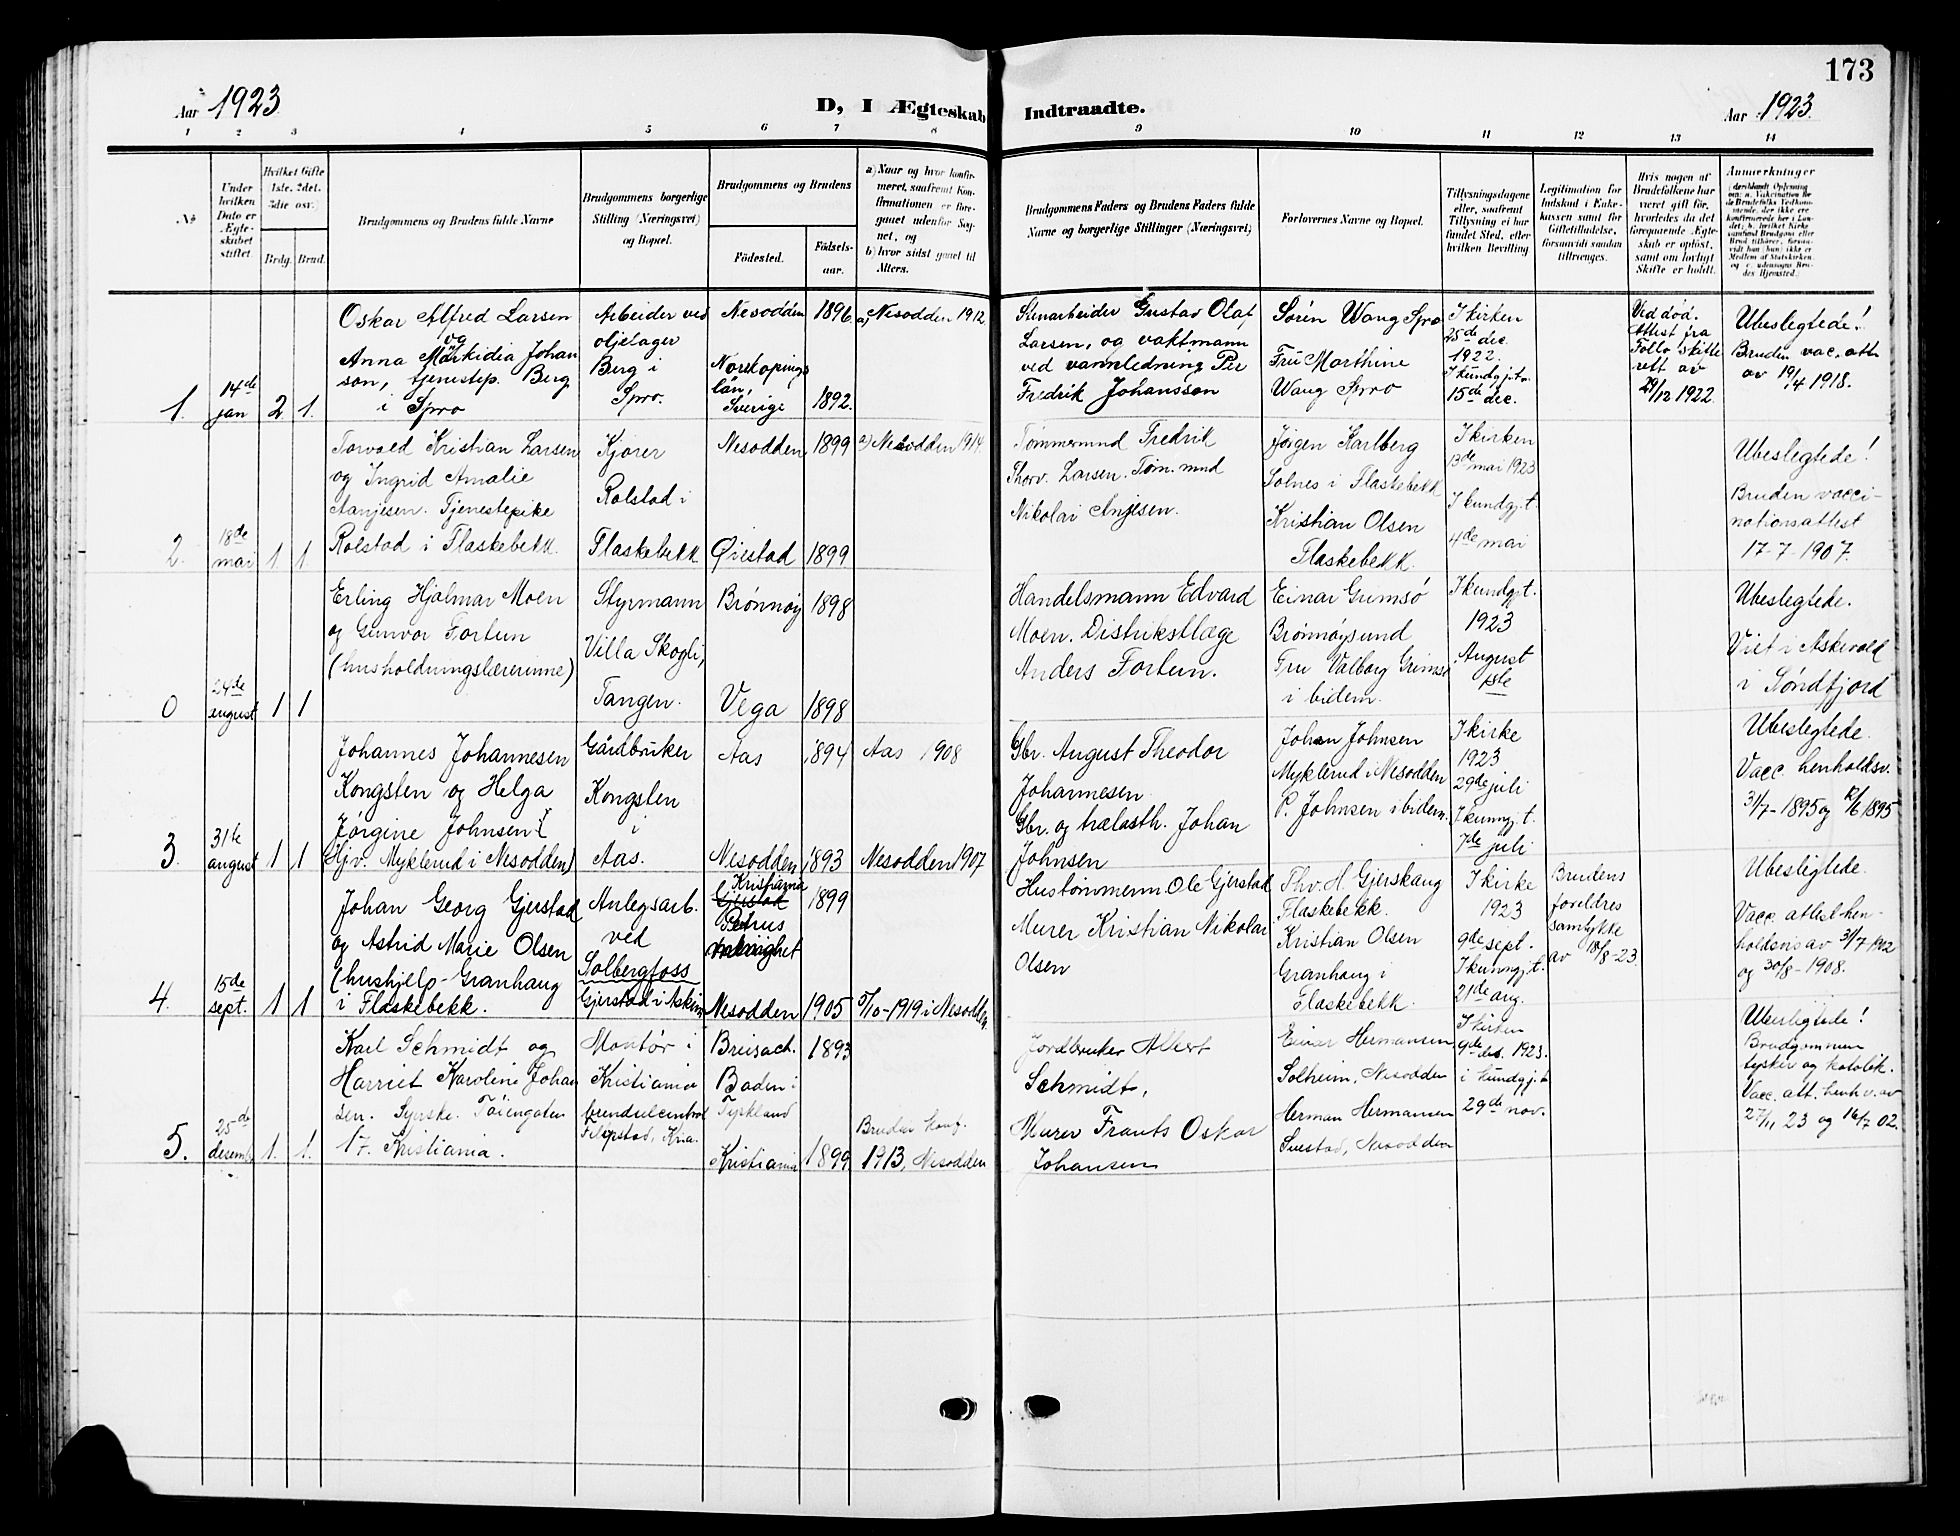 173
Aar 1923
D, I Ægteskab Indtraadte.
Aar 1923.
1 2 3 4 5 6 7 8 9 10 11 12 13 14
No
Under hvilken Dato er Ægteskabet stiftet.
Hvilket Gifte 1ste. 2det. 3die osv.)
Brdg. Brud.
Brudgommens og Brudens fulde Navne
Brudgommens borgerlige Stilling (Næringsvei) og Bopæl.
Brudgommens og Brudens
Fødested.
Fødselsaar.
a) Naar og hvor konfirmeret, saafremt Konfirmationen er foregaaet udenfor Sognet, og
b) hvor sidst gaaet til Alters.
Brudgommens Faders og Brudens Faders fulde Navne og borgerlige Stillinger (Næringsvei)
Forlovernes Navne og Bopæl.
Tillysningsdagene eller, saafremt Tillysning ei har fundet Sted, efter hvilken Bevilling
Legitimation for Indskud i Enkekassen samt for Giftetilladelse, forsaavidt saadan tiltrænges.
Hvis nogen af Brudefolkene har været gift før, hvorledes da det foregaaende Ægteskab er opløst, samt om lovligt Skifte er holdt.
Anmærkninger
1.
14de jan
2 1.
Oskar Alfred Larsen
og
Anna Markidia Johan
son, tjenestep. Berg
i Spro
Arbeider ved
oljelager
Berg i
Spro.
Nesodden 1896.
Nordkopings
län,
Sverige 1892.
a) Nesodden 1912.
Stenarbeider Gustav Olaf
Larsen, og vaktmann
ved vannledning Per
Fredrik Johansson
Sørén Wang Spro
Fru Marthine
Wang Spro
I kirken
25de dec.
1922.
I kundgj.t.
15de dec.
Ved død.
Attest fra
Follo skifte
rett av
29/12 1922.
Ubeslegtede!
Bruden vac. att.
av 19/4 1918.
2.
18de
mai
1 1.
Torvald Kristian Larsen
og Ingrid Amalie
Aanjesen. Tjenestepike
Rolstad i Flaskebekk.
Kjører
Rolstad i
Flaskebekk
Nesodden 1899
Øiestad 1899
a) Nesodden 1914.
Tømmermnd Fredrik
Thorv. Larsen. Tøm. mnd
Nikolai Anjesen.
Jørgen Karlberg
Solnes i Flaskebekk
Kristian Olsen
Flaskebekk.
I kirken
13de mai 1923
I kundgj.t.
4de mai
Ubeslegtede!
Bruden vacci-
nationsattest
17-7-1907.
0
24de
august
1 1
Erling Hjalmar Moen
og Gunvor Fortun
(husholdningslærerinne)
Styrmann
Villa Skogli,
Tangen.
Brønnøy 1898
Vega 1898
Handelsmann Edvard
Moen. Distriktslæge
Anders Fortun.
Einar Grimsø
Brønnøysund
Fru Valborg Grimsø
i bidem.
I kundgj.t.
1923
August
1ste
Ubeslegtede.
Viet i Askevold
i Søndfjord
3.
31te
august
1 1
Johannes Johannesen
Kongsten og Helga
Jørgine Johnsen
(Hjv. Myklerud i Nesodden)
Gårdbruker
Kongsten
i
Aas.
Aas 1894
Nesodden 1893
Aas 1908
Nesodden 1907
Gbr. August Theodor
Johannesen
Gbr. og trælasth. Johan
Johnsen
Johan Johnsen
Myklerud i Nesodden
P. Johnsen i bidem.
I kirke
1923
29de juli
I kunngj.t.
7de juli
Ubeslegtede.
Vacc. henholdsv.
31/7-1895 og 12/6 1895
4.
15de
sept.
1 1
Johan Georg Gjerstad
og Astrid Marie Olsen
(hushjelp - Granhaug
i Flaskebekk.
Anlegsarb.
ved
Solbergfoss
Gjerstad i Askim
Kristiania
Gjerstad
Petrus
menighet 1899
Nesodden 1905
5/10-1919 i Nesodden.
Hustømmerm. Ole Gjerstad
Murer Kristian Nikolai
Olsen
Thv. H. Gjerskaug
Flaskebekk.
Kristian Olsen
Granhaug i
Flaskebekk.
I kirke
1923
9de sept.
I kunngj.t.
21de aug.
Brudens
foreldres
samtykke
av 18/8-23.
Ubeslegtede.
Vacc. attest hen-
holdsvis av 31/7 1902
og 30/8-1908.
5.
25de
desemb.
1. 1.
Karl Schmidt og
Harriet Karoline Johan
sen. Syerske. Tøiengaten
17. Kristiania.
Montør i
Kristiania
Filipstad, Kria.
Breisach.
Baden i
Tyskland 1893
Kristiania 1899
Bruden konf.
1913, Nesodden
Jordbruker Albert
Schmidt,
Murer Frants Oskar
Johansen
Einar Hermansen
Solheim, Nesodden
Herman Hermansen
Nesodden
I kirken
9de des. 1923.
i kundgj.t.
29de nov.
Ubeslegtede!
Brudgommen
tysker og katolik.
Vacc. att. henh.v. av
27/11 23 og 16/7 02.